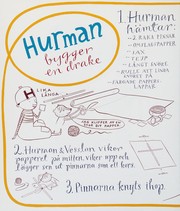 Hurman
bygger
en drake
1. Hurman
hämtar:
- 2 RAKA PINNAR
- OMSLAGSPAPPER
- SAX
- TEJP
- LÅNGT SNÖRE
- RULLE MED LINDA
- FÄRGADE PAPPERS-
LAPPAR
H
LIKA
LÅNGA
HAN KLIPPER AV EN
STOR BIT PAPPER
2. Hurman & Verstan viker
papperet på mitten, viker upp och
lägger sen ut pinnarna som ett kors.
3. Pinnarna knyts ihop.